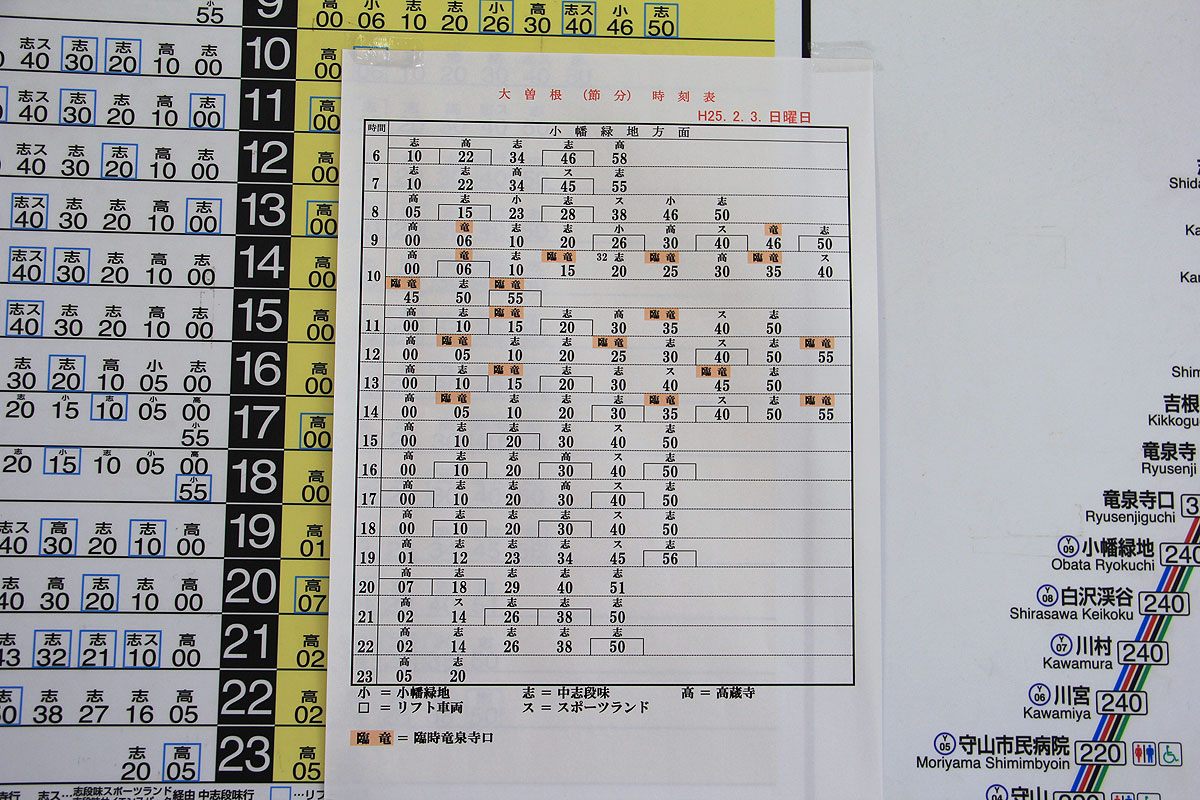 大曽根 (節分) 時刻表
H25. 2. 3. 日曜日
時間 小幡緑地方面
志 高 志 志 高
6 10 22 34 46 58
志 志 高 ス 志
7 10 22 34 45 55
高 志 小 志 ス 小 志
8 05 15 23 28 38 46 50
高 竜 志 志 小 高 ス 竜 志
9 00 06 10 20 26 30 40 46 50
高 竜 志 臨竜 32 志 臨竜 高 臨竜 ス
10 00 06 10 15 20 25 30 35 40
臨竜 志 臨竜
45 50 55
高 志 臨竜 志 高 臨竜 ス 志
11 00 10 15 20 30 35 40 50
高 臨竜 志 志 臨竜 志 ス 志 臨竜
12 00 05 10 20 25 30 40 50 55
高 志 臨竜 志 志 ス 臨竜 志
13 00 10 15 20 30 40 45 50
高 臨竜 志 志 志 臨竜 ス 志 臨竜
14 00 05 10 20 30 35 40 50 55
高 志 志 高 ス 志
15 00 10 20 30 40 50
高 志 志 高 ス 志
16 00 10 20 30 40 50
高 志 志 高 ス 志
17 00 10 20 30 40 50
高 志 志 高 ス 志
18 00 10 20 30 40 50
高 志 志 志 ス 志
19 01 12 23 34 45 56
高 志 志 志 志
20 07 18 29 40 51
高 ス 志 志 志
21 02 14 26 38 50
高 志 志 志 志
22 02 14 26 38 50
高 志
23 05 20
小 = 小幡緑地 志 = 中志段味 高 = 高蔵寺
□ = リフト車両 ス = スポーツランド
臨竜 = 臨時竜泉寺口
55 9 高 小 志 志 小 高 志ス 小 志
00 06 10 20 26 30 40 46 50
志ス 志 志 高 志
40 30 20 10 00 10 高 00
志ス 高 志 志 志
40 30 20 10 00 11 高 00
志ス 高 志 志 志
40 30 20 10 00 12 高 00
志ス 高 志 志 志
40 30 20 10 00 13 高 00
志ス 志 高 志 志
40 30 20 10 00 14 高 00
志ス 志 志 高 志
40 30 20 10 00 15 高 00
志 志 高 小 志
30 20 10 05 00 16 高 00
20 15 10 05 00 17 高 00
55
20 15 10 05 00 18 高 00
55
志ス 高 志 志 高
40 30 20 10 00 19 高 01
志 高 志 志 高
40 30 20 10 00 20 高 07
志 志 志 志ス 高
43 32 21 10 00 21 高 02
志 高 志 志 高
50 38 27 16 05 22 高 02
志 高
20 05 23 高 05
志ス…志段味スポーツランド 経由 中志段味行 …リフ
Shida
Ka
Kau
Shim
吉根
Kikkogu
竜泉寺
Ryusenji
竜泉寺口
Ryusenjiguchi
Y09 小幡緑地 240
Obata Ryokuchi
Y08 白沢渓谷 240
Shirasawa Keikoku
Y07 川村 240
Kawamura
Y06 川宮 240
Kawamiya
Y05 守山市民病院 220
Moriyama Shimimbyoin
Y04 守山